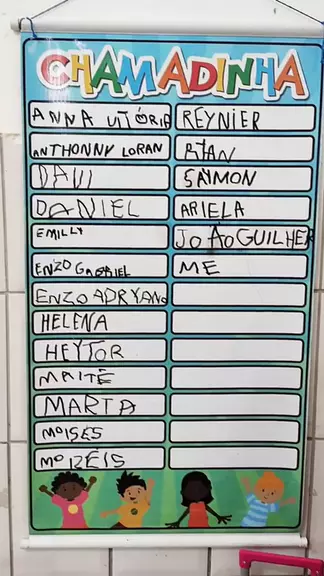 CHAMADINHA
ANNA VITÓRIA
ANTHONNY LORAN
DAVI
DANIEL
EMILLY
ENZO GABRIEL
ENZO ADRYANO
HELENA
HEYTOR
MAITÊ
MARTA
MOISÉS
MOIZÉIS
REYNIER
RYAN
SAYMON
ARIELA
JOÃO GUILHER
ME